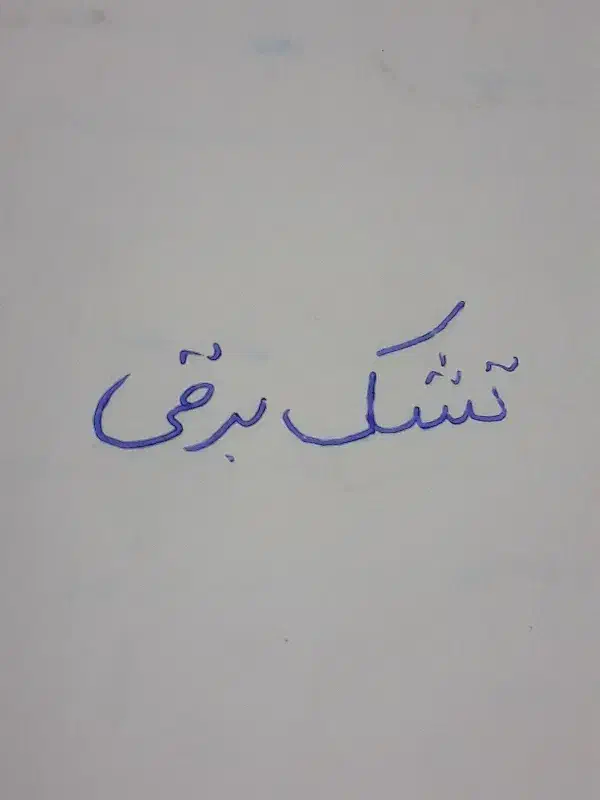 تشک برقی